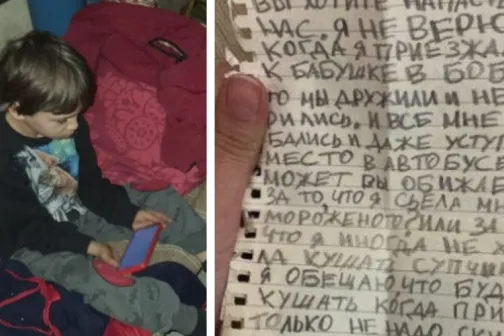 ВЫ ХОТИТЕ НАПАСТ
НАС. Я НЕ ВЕРЮ
КОГДА Я ПРИЕЗЖА
К БАБУШКЕ В БОБ
ТО МЫ ДРУЖИЛИ И НЕ
РИЛИСЬ. И ВСЕ МНЕ
БАЛИСЬ И ДАЖЕ УСТУП
МЕСТО В АВТОБУСЕ
МОЖЕТ ВЫ ОБИЖАЕ
ЗА ТО, ЧТО Я СЪЕЛА МН
МОРОЖЕНОГО? ИЛИ ЗА
ЧТО Я ИНОГДА НЕ
ЛА КУШАТЬ СУПЧИ
Я ОБЕЩАЮ ЧТО БУД
КУШАТЬ КОГДА ПРИ
ТОЛЬКО НЕ НАДО